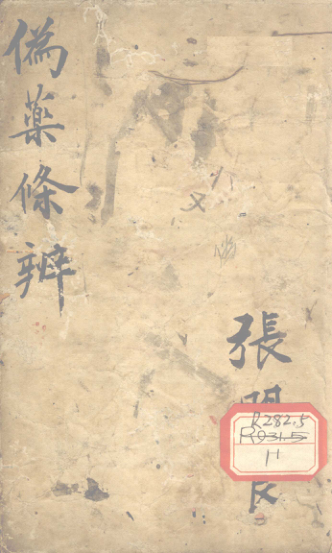 偽藥條辨
張明良
R282.5
R931.5
H